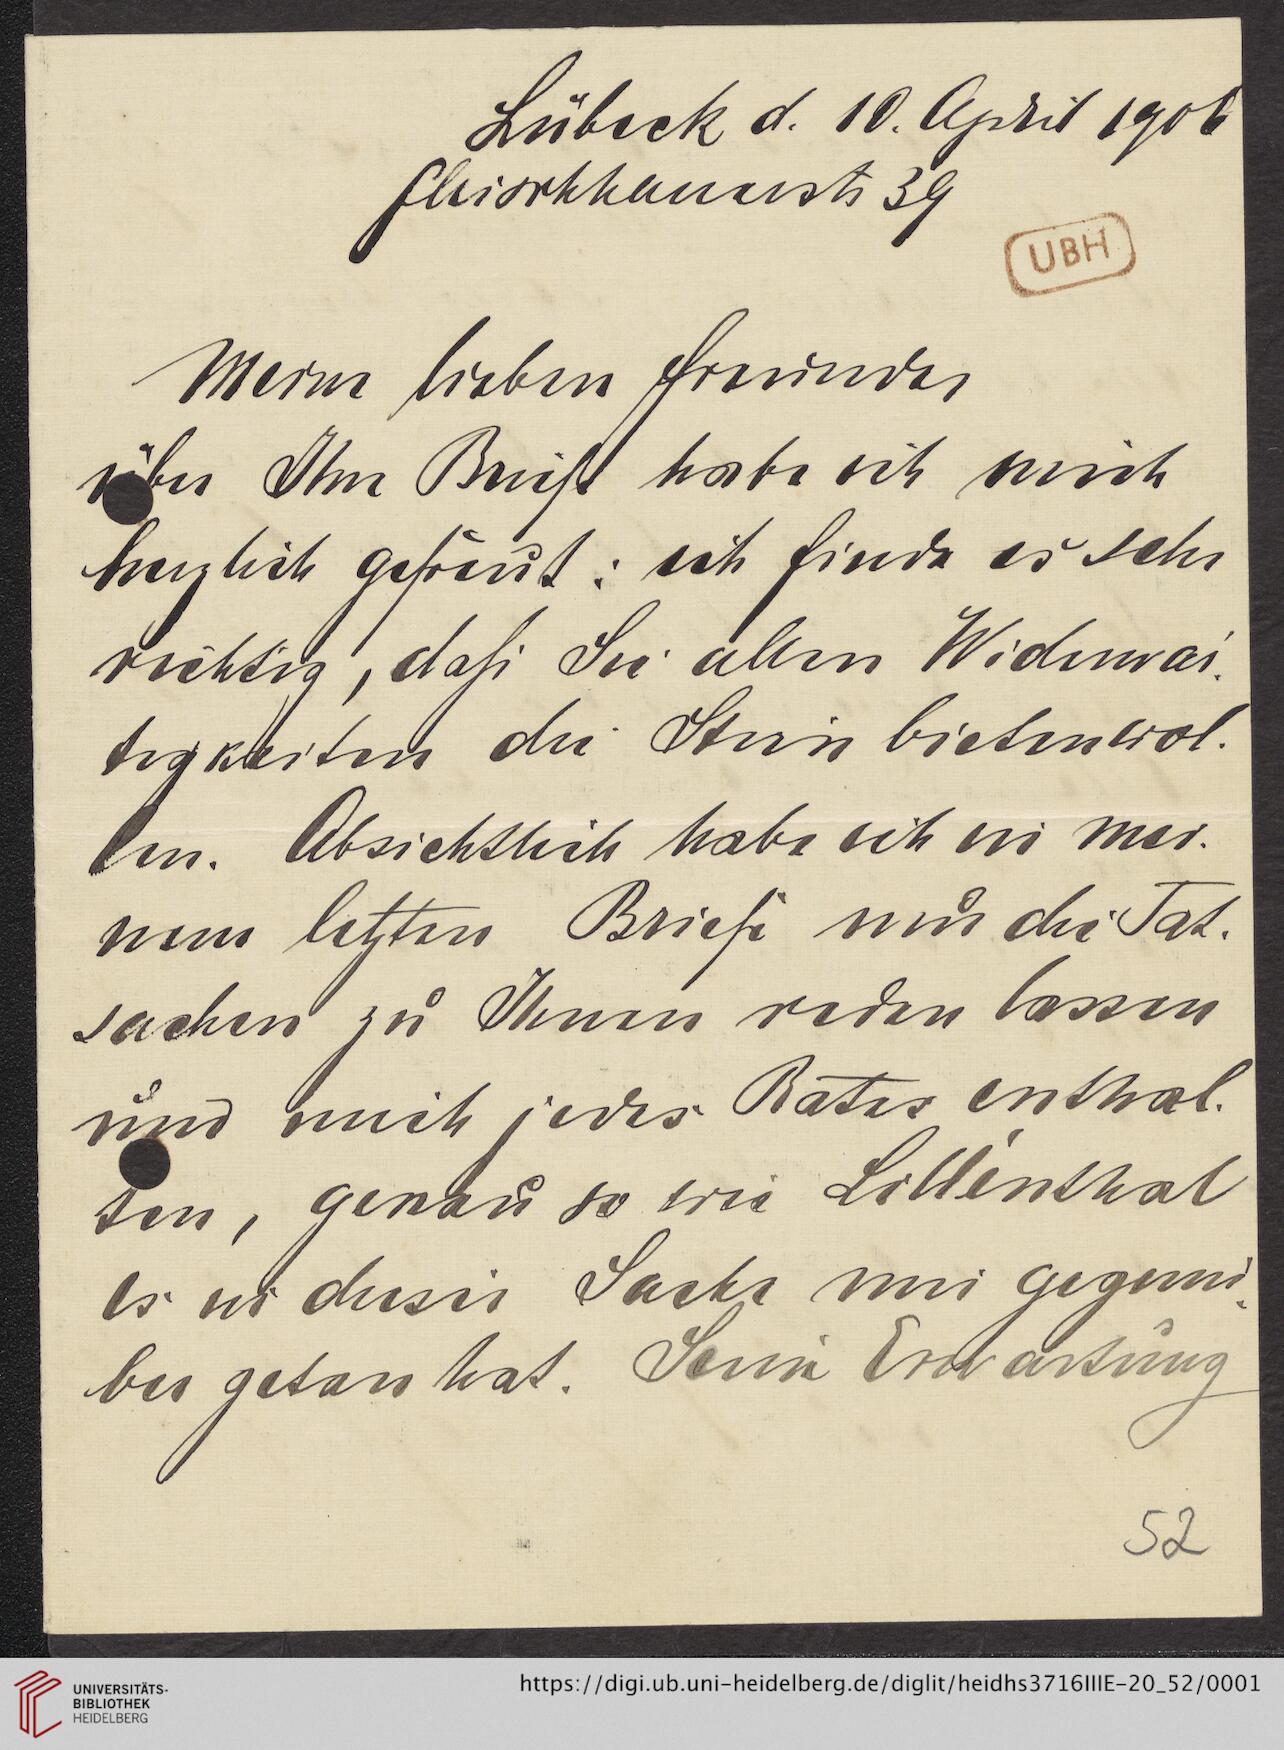 Lübeck d. 10. April 1906
Fleischhauerstr 39
UBH
Meine lieben Freunde,
über Ihren Brief habe ich mich
herzlich gefreut: ich finde es sehr
richtig, daß Sie allen Widerwär-
tigkeiten die Stirn bieten wol-
len. Absichtlich habe ich in mei-
nem letzten Briefe nur die Tat-
sachen zu Ihnen reden lassen
und mich jedes Rates enthal-
ten, genau so wie Lillenthal
es in dieser Sache mir gegenü-
ber getan hat. Seine Erwartung
52
UNIVERSITÄTS-
BIBLIOTHEK
HEIDELBERG
https://digi.ub.uni-heidelberg.de/diglit/heidhs3716IIIE-20_52/0001